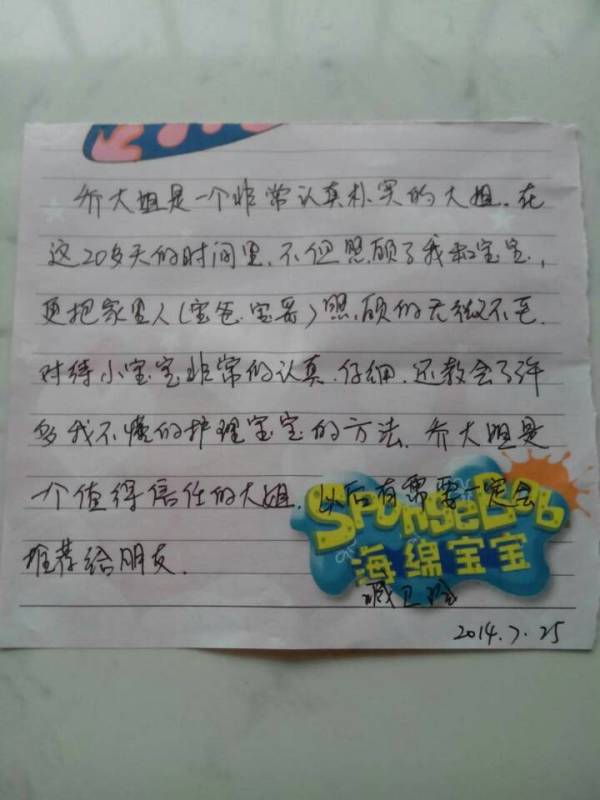 乔大姐是一个非常认真朴实的大姐.在
这20多天的时间里.不但照顾了我和宝宝,
更把家里人(宝爸.宝哥)照顾的无微不至.
对待小宝宝非常的认真.仔细.还教会了许
多我不懂的护理宝宝的方法.乔大姐是
一个值得信任的大姐.以后有需要一定会
推荐给朋友.
SPONGEBOB
海绵宝宝
2014.7.25